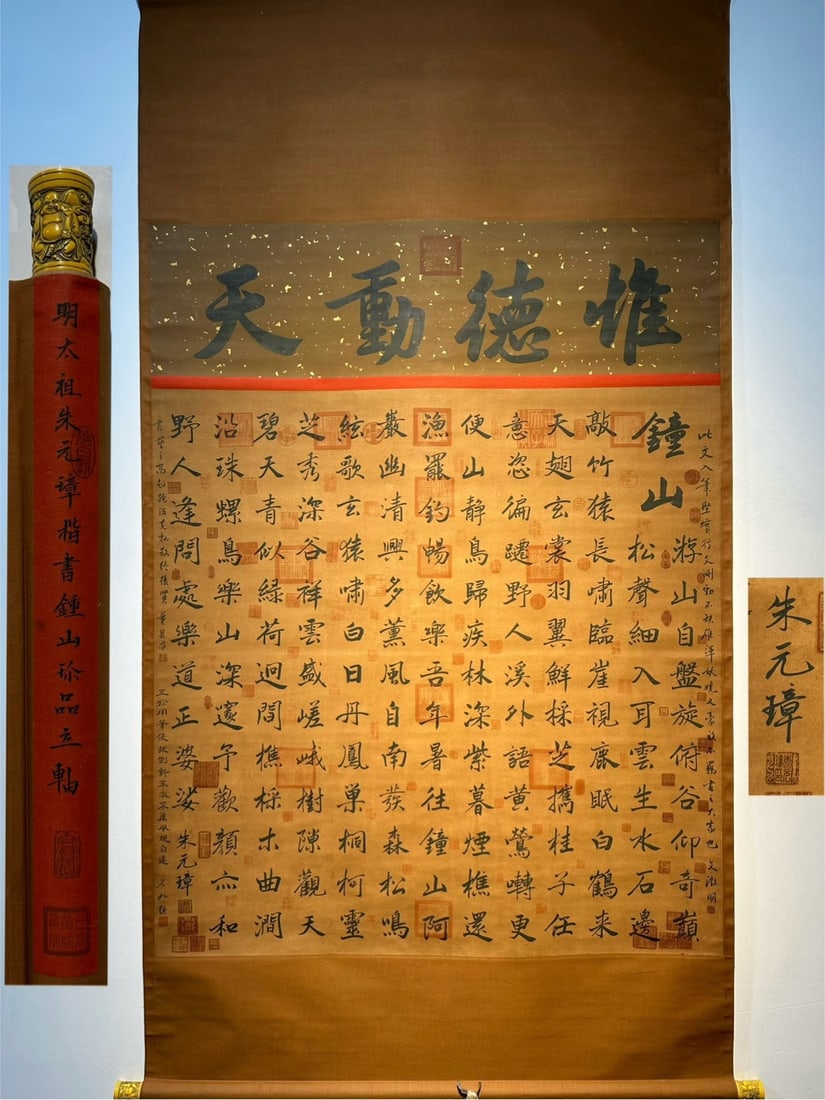 明太祖朱元璋楷書鍾山珍品立軸
惟德動天
鐘山
游山自盤旋俯谷仰奇巔
松聲細入耳雲生水石邊
敲竹猿長嘯臨崖視鹿眠白鶴来
天翅玄裳羽翼鮮採芝攜桂子任
意恣徧躔野人溪外語黄鶯囀更
便山静鳥歸疾林深紫暮煙樵還
漁罷釣暢飲樂吾年暑往鐘山阿
巖幽清興多薰風自南發森松鳴
絃歌玄猿嘯白日丹鳳巢桐柯靈
芝秀深谷祥雲盛嵯峨樹隙觀天
碧天青似緑荷迥間樵採木曲澗
沿珠螺鳥樂山深邃予歡顔亦和
野人逢問處樂道正婆娑
朱元璋
文徵明
董其昌
朱元璋